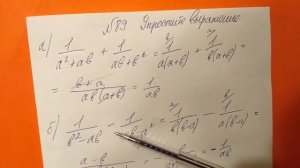 № 89 Упростите выражение:
а) 1/(a²+ab) + 1/(ab+b²) = 1/(a(a+b)) + 1/(b(a+b)) =
= (b+a)/(ab(a+b)) = 1/(ab)
б) 1/(b²-ab) - 1/(b-a²) = 1/(b(b-a)) - 1/(a(b-a)) =
= (a-b)/ = -1/(ab)